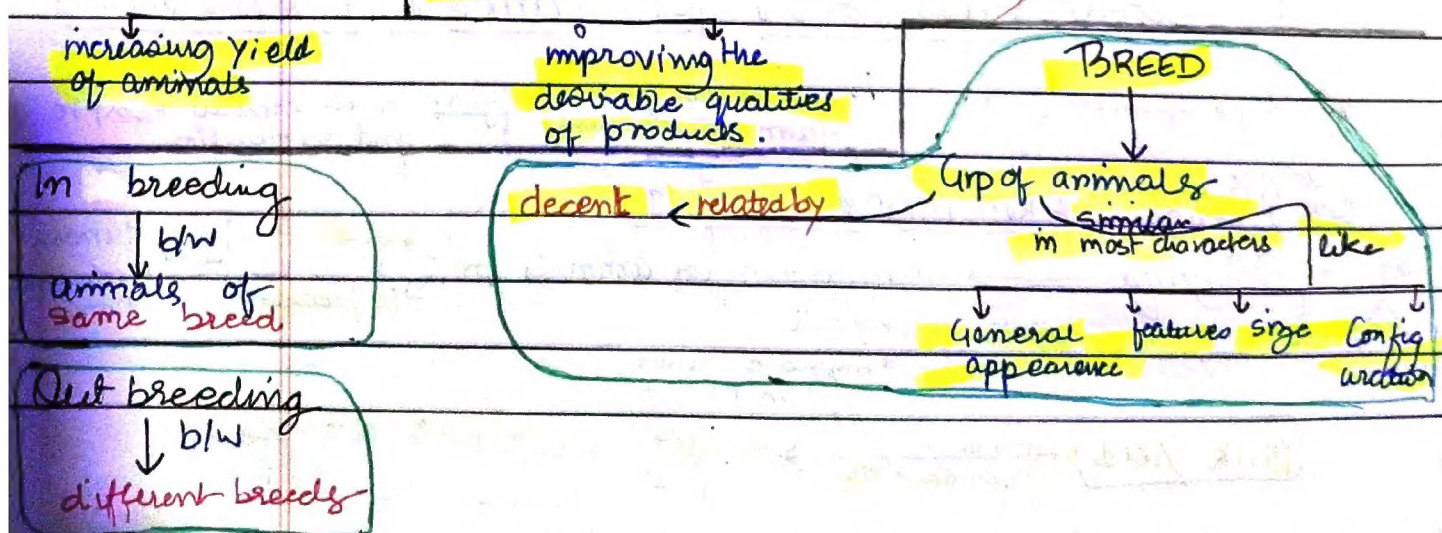 increasing yield
of animals
improving the
desirable qualities
of produces.
BREED
Grp of animals
similar
in most characters
like
related by
decent
General
appearence
features
size
Config
uration
In breeding
b/w
animals of
same breed
Out breeding
b/w
different breeds